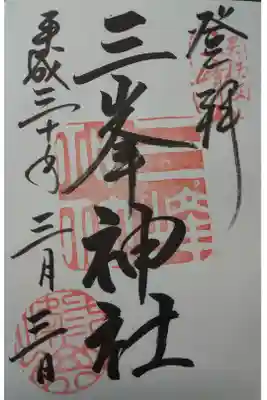 登拝
三峯神社
平成三十年三月三日